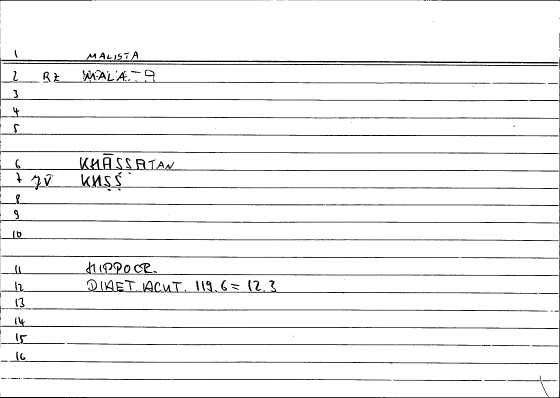 1 MALISTA
2 RZ
3
4
5
6 KHĀṢṢATAN
7 JV ḪṢṢ
8
9
10
11 HIPPOCR.
12 DIAET. ACUT. 119.6 = 12.3
13
14
15
16